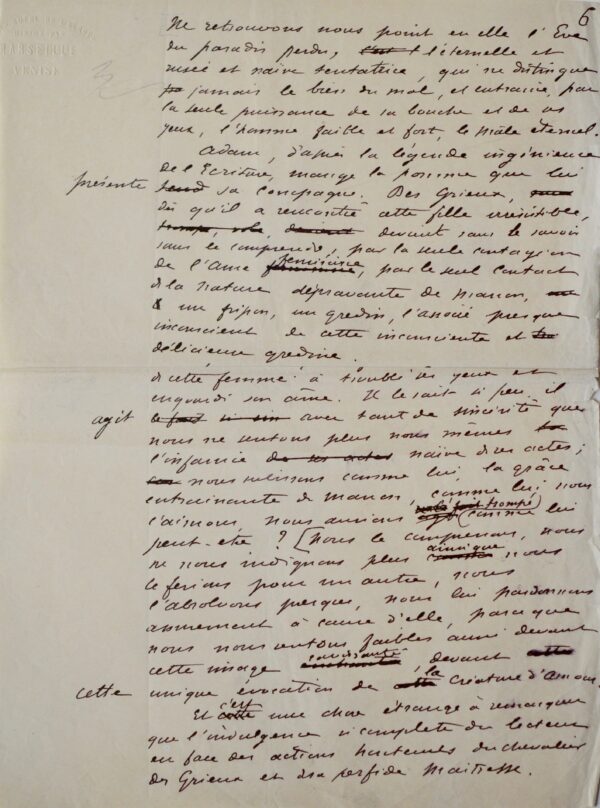 6
MARSEILLE
Ne retrouvons nous point en elle l'Eve
du paradis perdu, l'éternelle et
rusée et naïve tentatrice, qui ne distingue
jamais le bien du mal, et entraine par
la seule puissance de sa bouche et de ses
yeux, l'homme faible et fort, le mâle éternel.
Adam, d'après la légende ingénieuse
de l'Ecriture, mange la pomme que lui
présente tend sa compagne. Des Grieux,
dès qu'il a rencontré cette fille irrésistible,
trompe, vole, devient devient sans le savoir
sans le comprendre, par la seule contagion
de l'âme féminine, par le seul contact
de la nature dépravante de Manon,
un fripon, un gredin, l'associé presque
inconscient de cette inconsciente et
délicieuse gredine.
cette femme a troublé ses yeux et
engourdi son âme. Il le sait si peu, il
agit avec tant de sincérité que
nous ne sentons plus nous mêmes
l'infamie de ses actes naïve de ses actes;
nous subissons comme lui, la grâce
entrainante de Manon, comme lui, nous
l'aimons, nous aurions fait trompé comme lui
peut-etre ? Nous le comprenons, nous
ne nous indignons plus ainsi que nous
le ferions pour un autre, nous
l'absolvons presque, nous lui pardonnons
surement à cause d'elle, parce que
nous nous sentons faibles aussi devant
cette image séduisante, devant
cette unique évocation de la créature d'amour.
Et c'est une chose étrange à remarquer
que l'indulgence si complète du lecteur
en face des actions honteuses du chevalier
des Grieux et de sa perfide Maitresse.